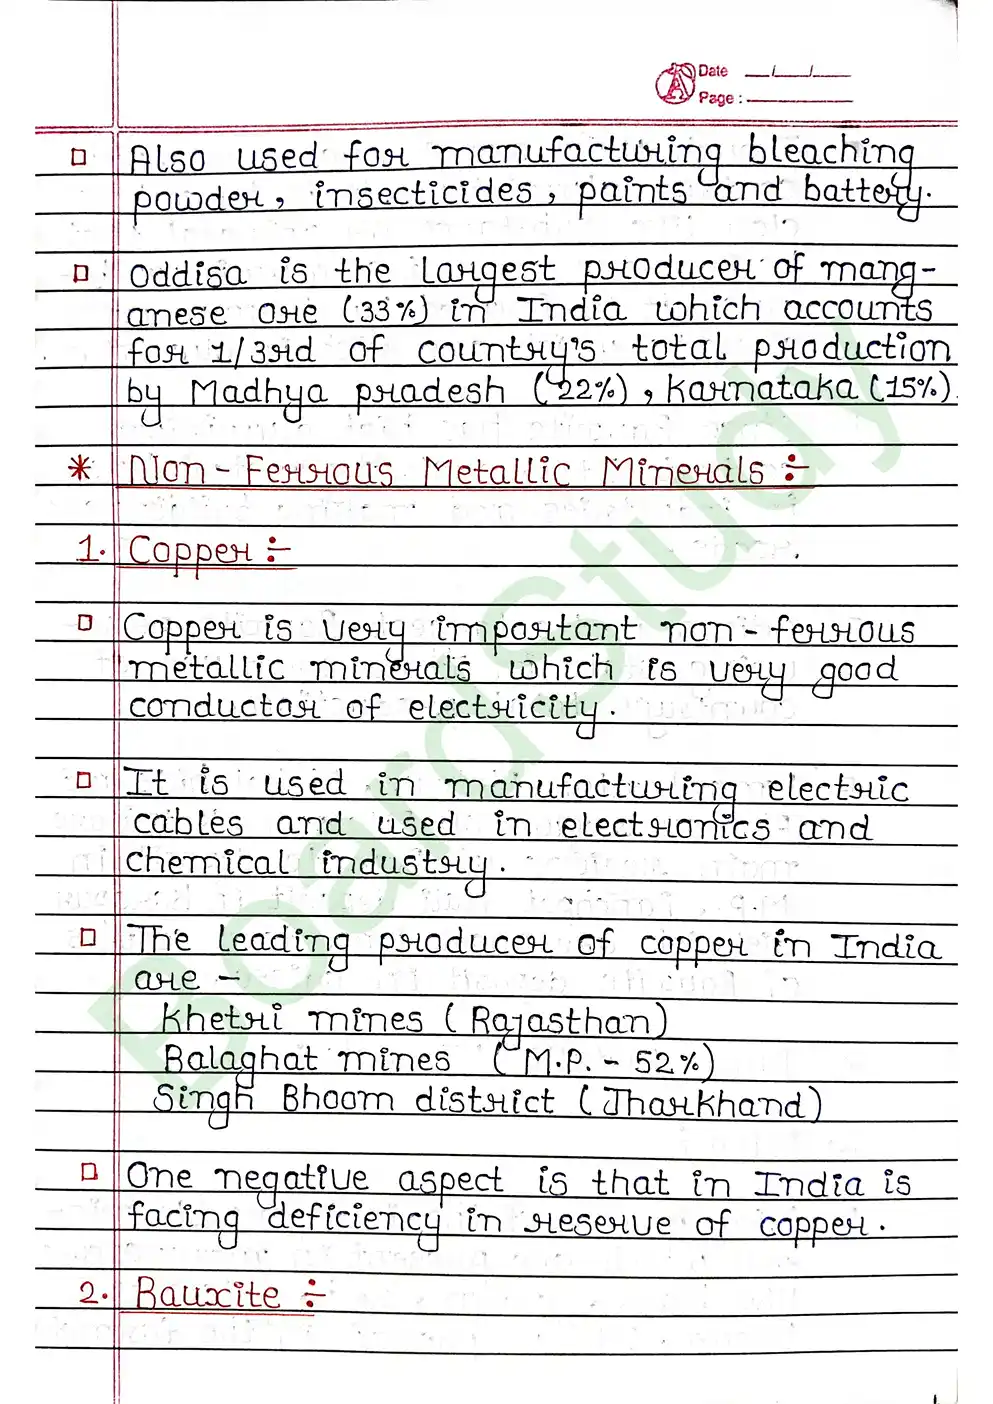 Date __/__/__
Page : ______
□ Also used for manufacturing bleaching
powder, insecticides, paints and battery.
□ Oddisa is the largest producer of mang-
anese ore (33%) in India which accounts
for 1/3rd of country's total production
by Madhya pradesh (22%), Karnataka (15%)
* Non-Ferrous Metallic Minerals ÷
1. Copper ÷
□ Copper is very important non-ferrous
metallic minerals which is very good
conductor of electricity.
□ It is used in manufacturing electric
cables and used in electronics and
chemical industry.
□ The leading producer of copper in India
are -
Khetri mines (Rajasthan)
Balaghat mines (M.P. - 52%)
Singh Bhoom district (Jharkhand)
□ One negative aspect is that in India is
facing deficiency in reserve of copper.
2. Bauxite ÷
BoardStudy